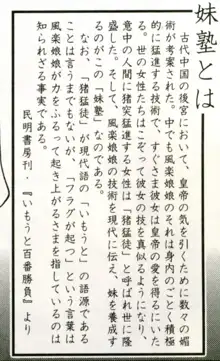 妹塾とは
古代中国の後宮において、皇帝の気を引くために数々の媚
術が考案された。中でも風楽娘娘のそれは身内のごとく積極
的に猛進する技術で、すぐさま彼女は皇帝の愛を得たにいた
る。世の女性たちはこぞって彼女の技を真似るようになり、
意中の人間に猪突猛進する女性は「猪猛徒」と呼ばれ世に隆
盛した。そんな風楽娘娘の技術を現代に伝え、妹を養成す
るのがこの「妹塾」なのである。
なお、「猪猛徒」が現代語の「いもうと」の語源である
ことは言うまでもないが、「フラグが起つ」という言葉は
風楽娘娘が力をふるって起き上がるさまを指しているのは
知られざる事実である。
民明書房刊、『いもうと百番勝負』より